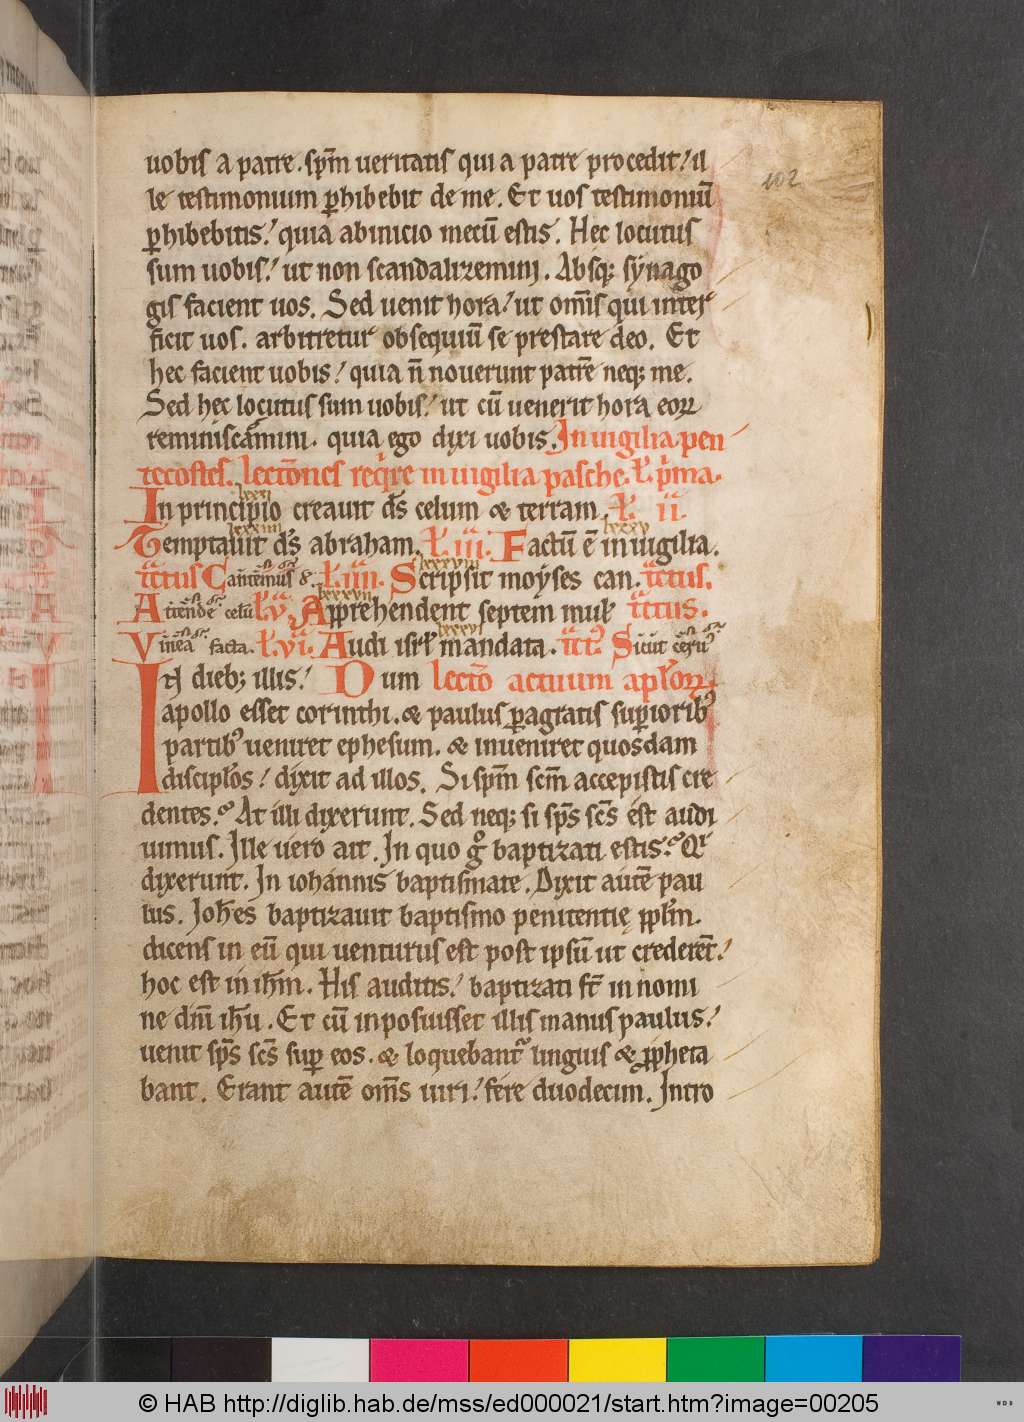 102
uobis a patre. sp̄m ueritatis qui a patre procedit! il
le testimonium p̱hibebit de me. Et uos testimoniū
p̱hibebitis! quia abinicio mecū estis. Hec locutus
sum uobis! ut non scandalizemini. Absq; synago
gis facient uos. Sed uenit hora! ut om̄s qui inter
ficit uos. arbitretur obsequiū se prestare deo. Et
hec facient uobis! quia n̄ nouerunt patrē neq; me.
Sed hec locutus sum uobis! ut cū uenerit hora eoꝝ
reminiscamini. quia ego dixi uobis. In uigilia pen
tecostes. lectōnes req̇re in uigilia pasche. ł. ṗma.
lxxxi
In principio creauit d̄s celum & terram. ł. ii.
lxxxiiii lxxxv
Temptauit d̄s abraham. ł. iii. Factū ē in uigilia.
lxxxviii
tc̄tus Cantem̄us &. ł. iiii. Scripsit moyses can. tc̄tus.
lxxxvii
Attende celū ł. v. Apprehendent septem mul tc̄tus.
lxxxvi
Vinea facta. ł. vi. Audi isrł mandata. tc̄t9. Sicut ceruꝰ
In dieb; illis! Dum lectō actuum apłoꝝ
apollo esset corinthi. & paulus ꝑagratis suꝑioribꝰ
partibꝰ ueniret ephesum. & inueniret quosdam
discipłos! dixit ad illos. Si sp̄m sc̄m accepistis cre
dentes. At illi dixerunt. Sed neq; si sp̄s sc̄s est audi
uimus. Ille uero ait. In quo gͦ baptizati estis. Qi
dixerunt. In iohannis baptismate. Dixit autē pau
lus. Joh̄es baptizauit baptismo penitentię ꝓpłm.
dicens in eū qui uenturus est post ipsū ut crederēt!
hoc est in ih̄m. His auditis! baptizati st̄ in nomi
ne dn̄i ih̄u. Et cū inposuisset illis manus paulus!
uenit sp̄s sc̄s suꝑ eos. & loquebant᷑ linguis & ꝓpheta
bant. Erant autē om̄s uiri! fere duodecim. Intro
© HAB http://diglib.hab.de/mss/ed000021/start.htm?image=00205